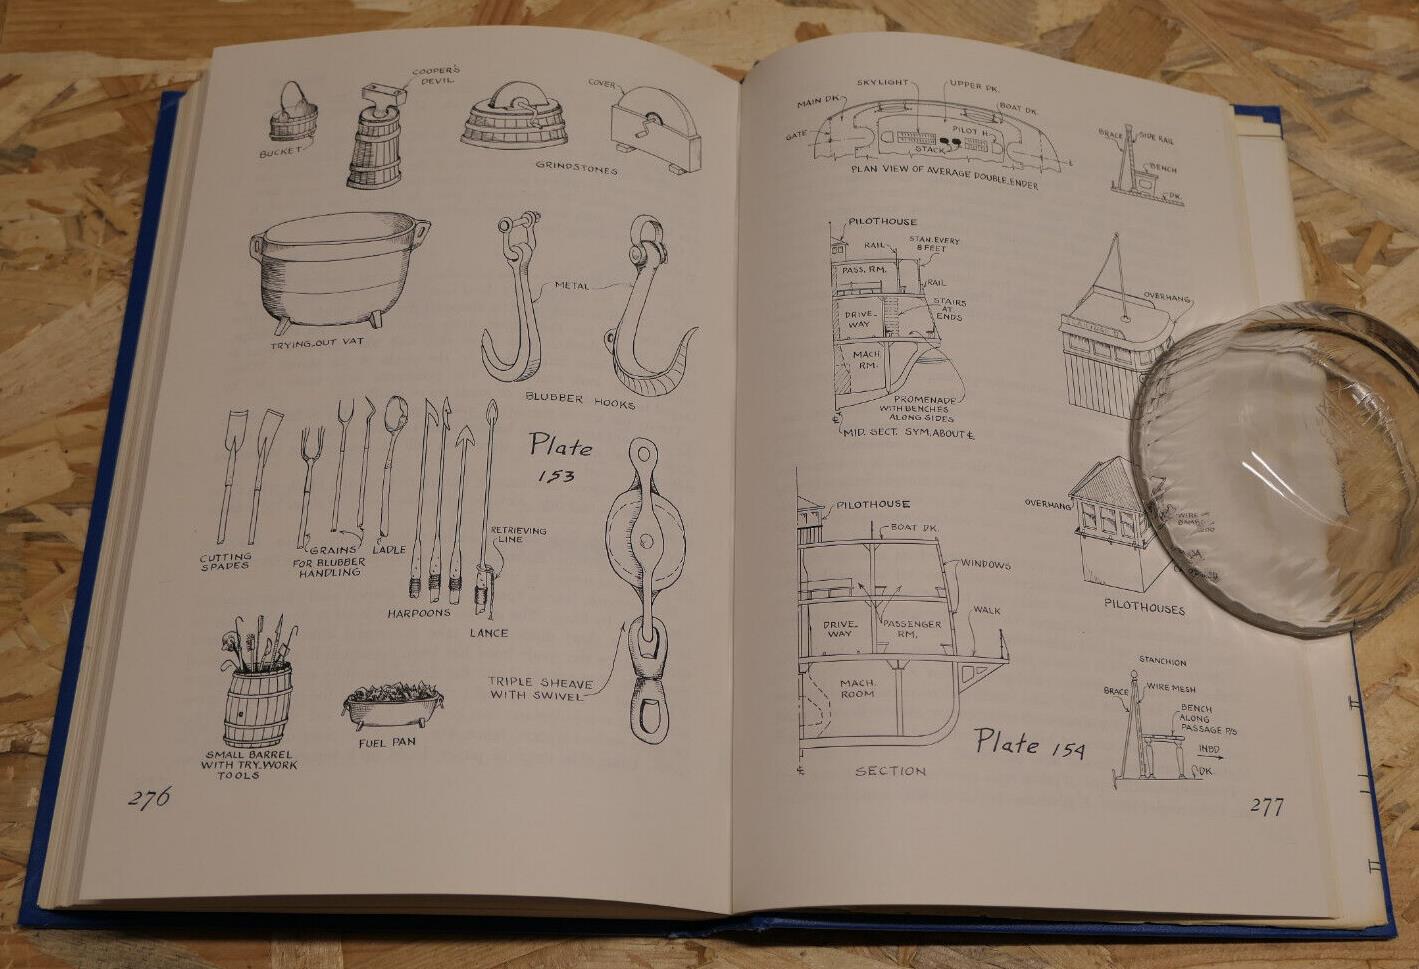 COOPER'S
DEVIL
BUCKET
COVER
GRINDSTONES
TRYING-OUT VAT
METAL
BLUBBER HOOKS
Plate
153
CUTTING
SPADES
GRAINS
FOR BLUBBER
HANDLING
LADLE
RETRIEVING
LINE
HARPOONS
LANCE
TRIPLE SHEAVE
WITH SWIVEL
SMALL BARREL
WITH TRY-WORK
TOOLS
FUEL PAN
276
SKYLIGHT
UPPER DK.
MAIN DK.
BOAT DK.
GATE
PILOT H.
STACK
PLAN VIEW OF AVERAGE DOUBLE-ENDER
BRACE
SIDE RAIL
BENCH
DK.
PILOTHOUSE
RAIL
STAN. EVERY
8 FEET
PASS. RM.
RAIL
STAIRS
AT
ENDS
DRIVE-
WAY
MACH.
RM.
PROMENADE
WITH BENCHES
ALONG SIDES
MID. SECT. SYM. ABOUT ℄
OVERHANG
OVERHANG
PILOTHOUSES
PILOTHOUSE
BOAT DK.
WINDOWS
WALK
DRIVE-
WAY
PASSENGER
RM.
MACH.
ROOM
SECTION
Plate 154
STANCHION
BRACE
WIRE MESH
BENCH
ALONG
PASSAGE P/S
INBD
DK.
277